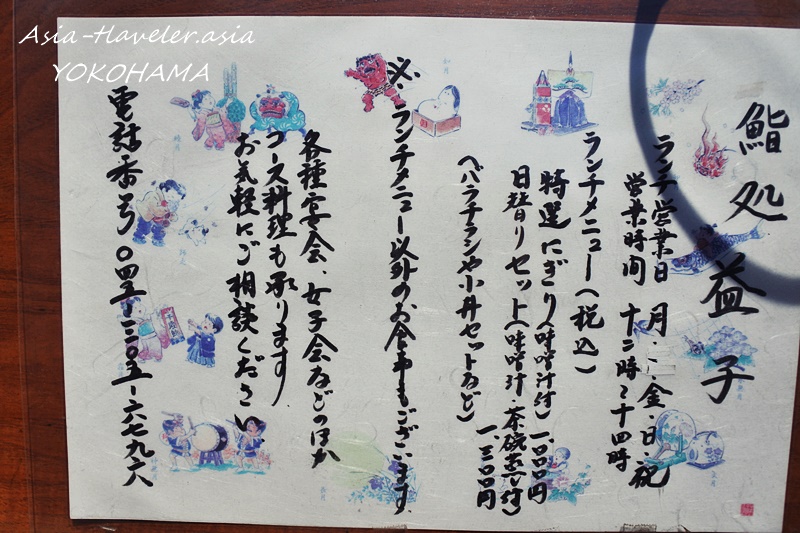 Asia-Haveler.asia
YOKOHAMA
鮨処 益子
ランチ営業日 月・金・日・祝
営業時間 十二時〜十四時
ランチメニュー(税込)
特選にぎり(味噌汁付)一、〇〇〇円
日替りセット(味噌汁・茶碗蒸し付)
(バラチラシや小丼セットなど) 一、三〇〇円
※ランチメニュー以外のお食事もございます
各種宴会、女子会などのほか
コース料理も承ります
お気軽にご相談ください
電話番号 〇四五-三〇五-六七九六